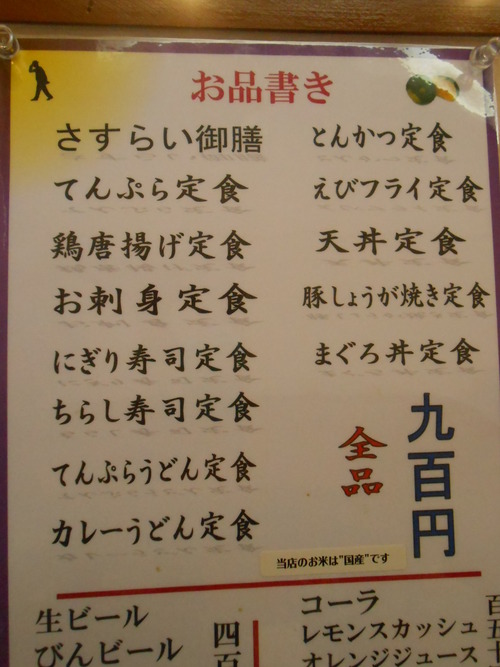 お品書き
さすらい御膳
てんぷら定食
鶏唐揚げ定食
お刺身定食
にぎり寿司定食
ちらし寿司定食
てんぷらうどん定食
カレーうどん定食
とんかつ定食
えびフライ定食
天丼定食
豚しょうが焼き定食
まぐろ丼定食
全品
九百円
当店のお米は"国産"です
生ビール
びんビール
四百
コーラ
レモンスカッシュ
オレンジジュース
百五